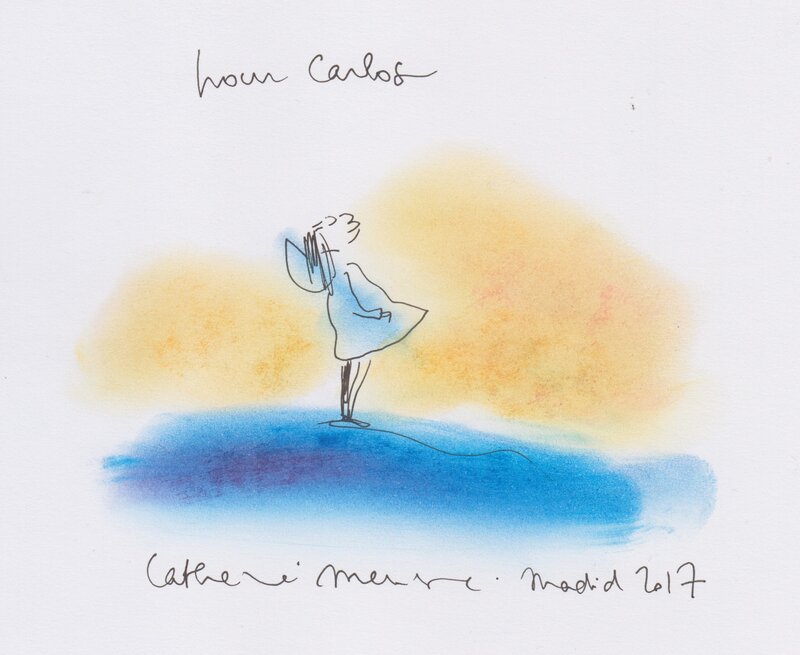 pour Carlos
Catherine Meurisse. Madrid 2017